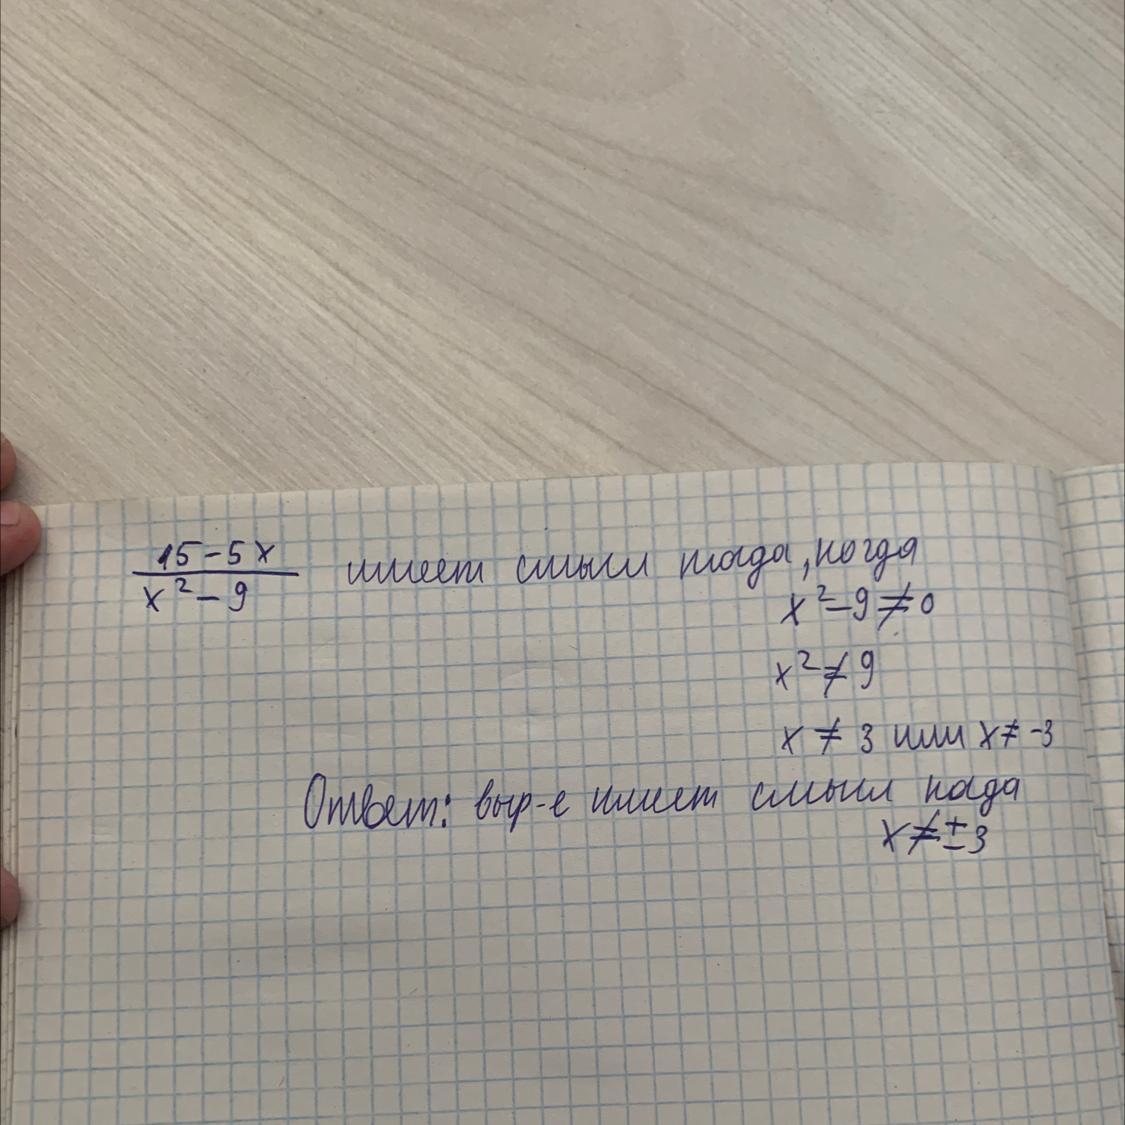 15-5x
x²-9
имеет смысл тогда, когда
x²-9≠0
x²≠9
x ≠ 3 или x≠-3
Ответ: выр-е имеет смысл когда
x≠±3